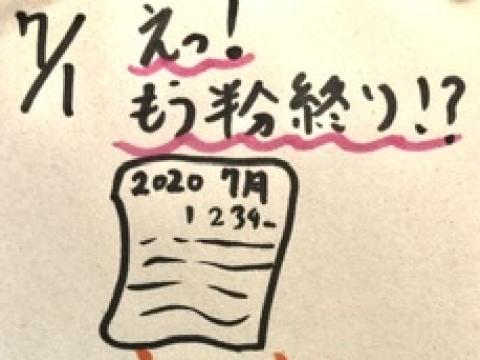 7/1
えっ!
もう粉終り!?
2020 7月
1 2 3 4